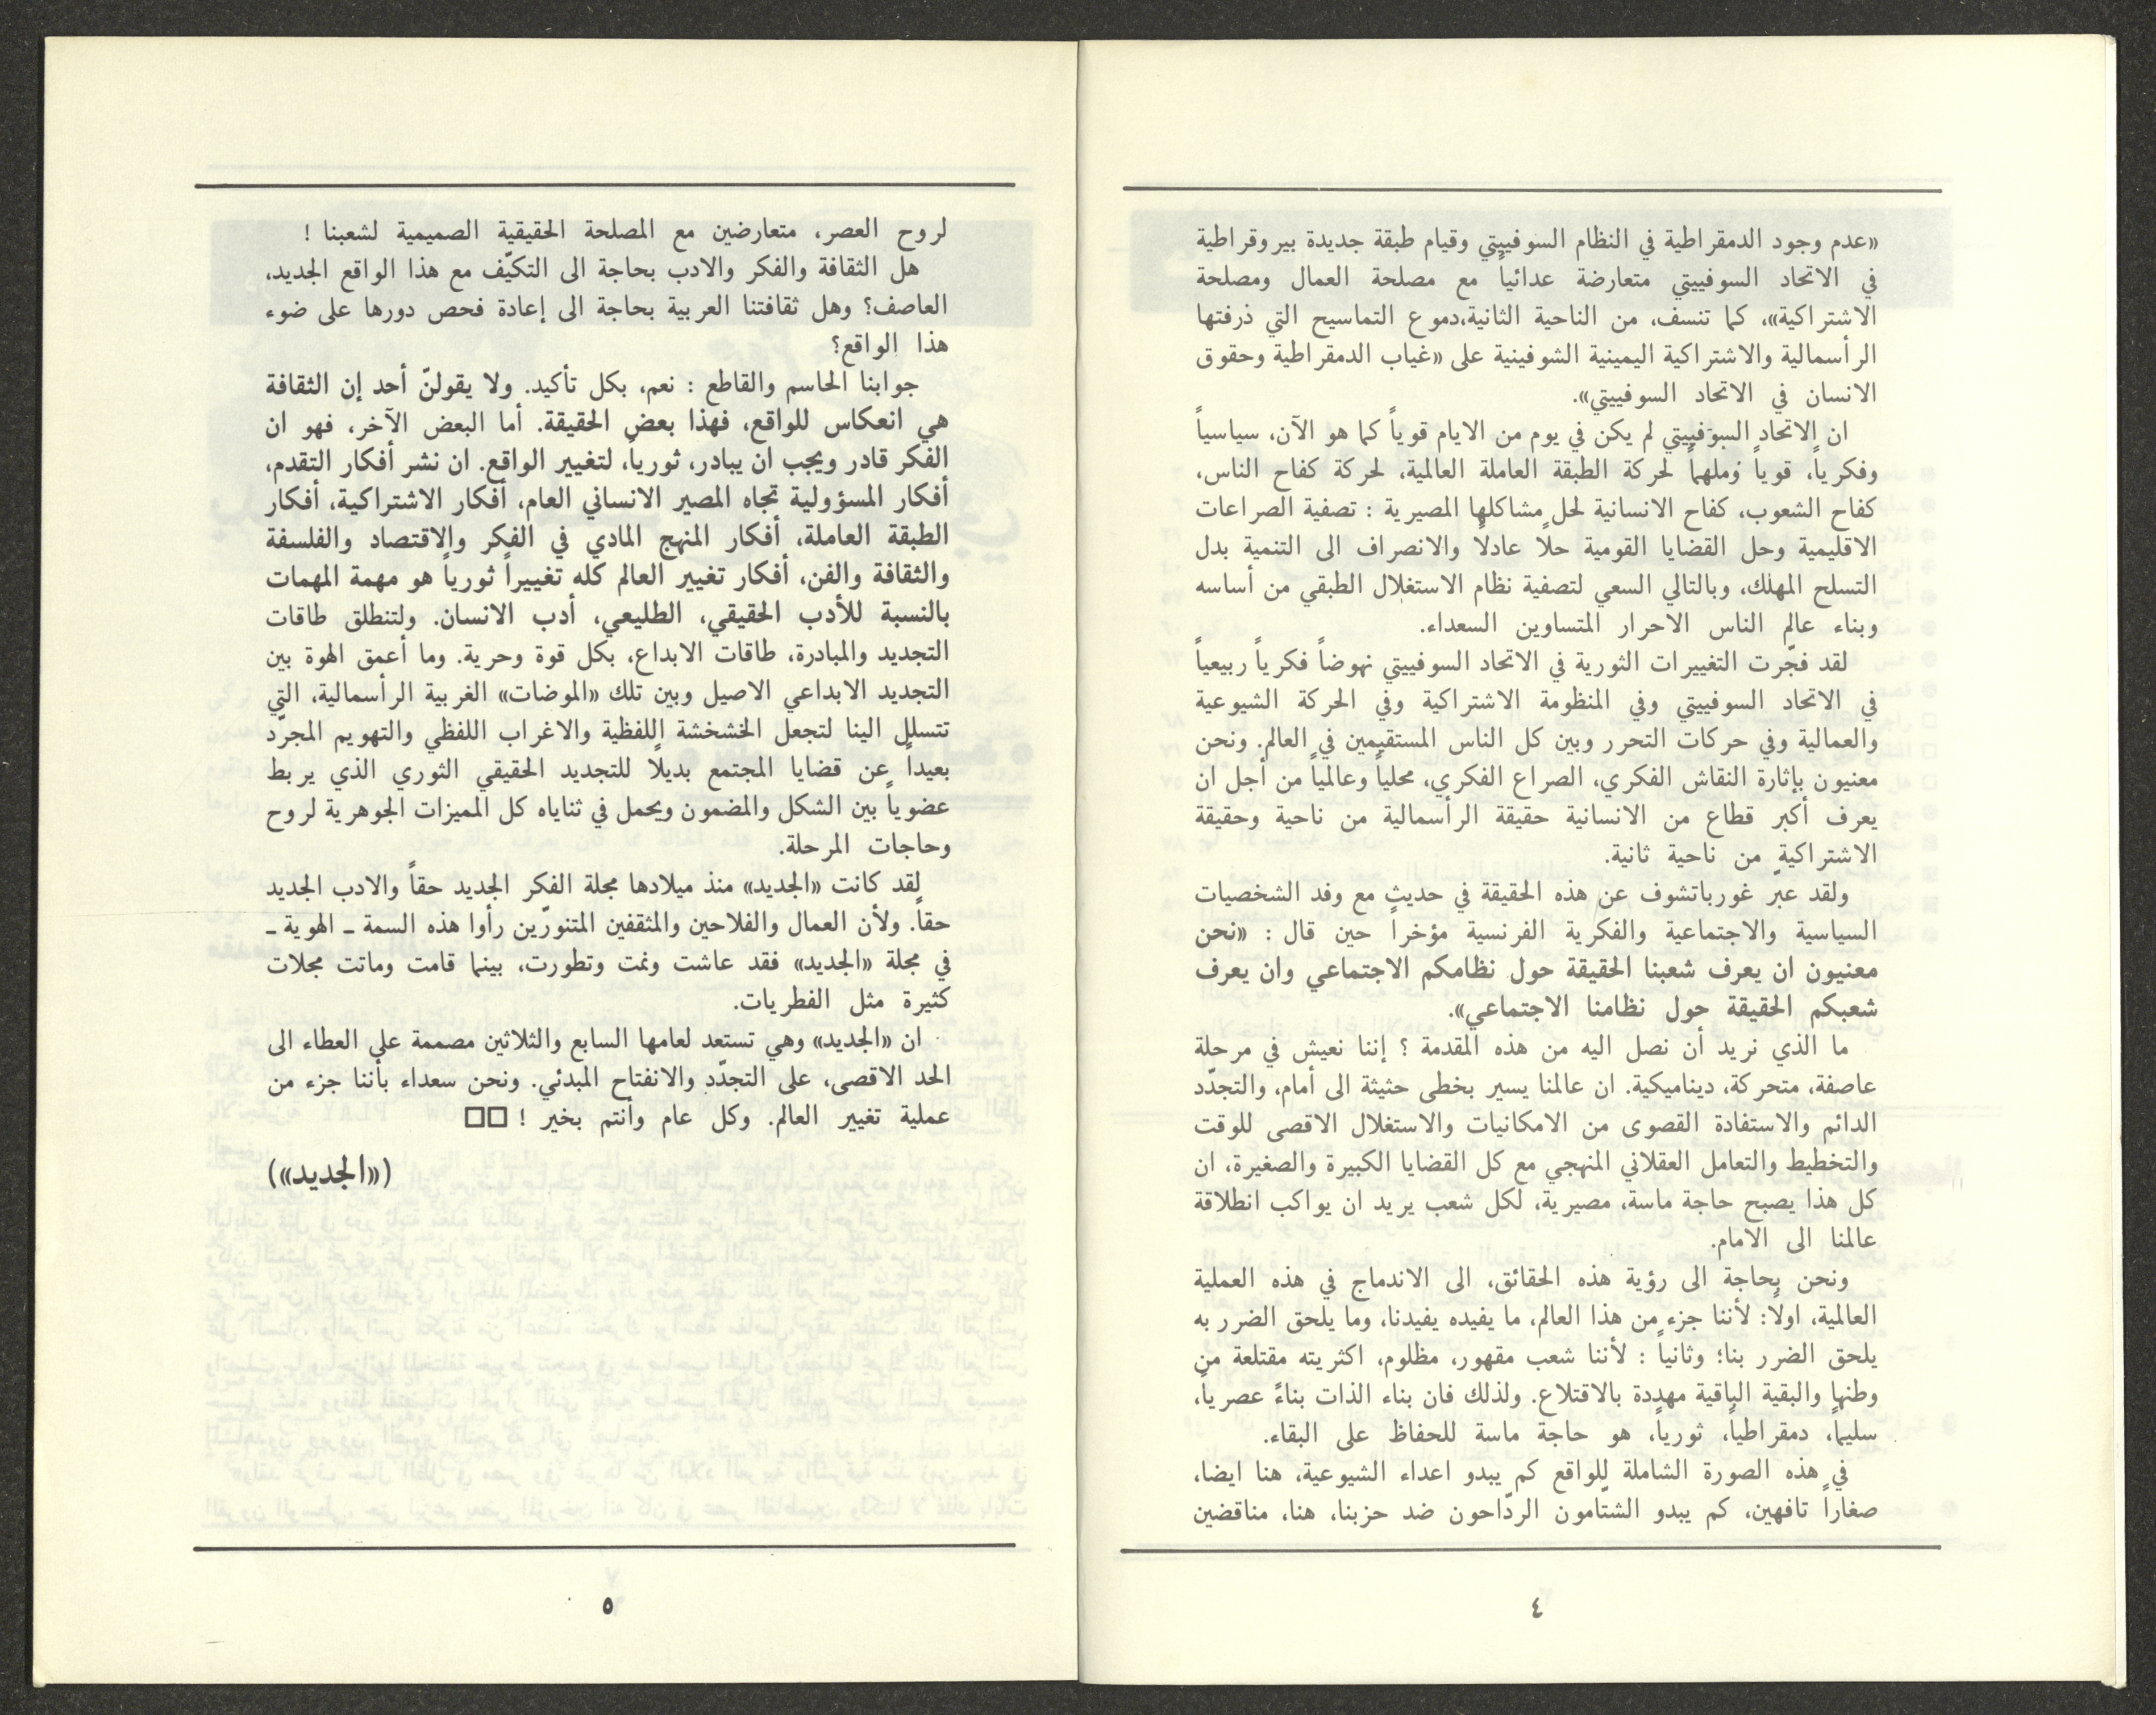 «عدم وجود الدمقراطية في النظام السوفييتي وقيام طبقة جديدة بيروقراطية
في الاتحاد السوفييتي متعارضة عدائياً مع مصلحة العمال ومصلحة
الاشتراكية»، كما تنسف، من الناحية الثانية،دموع التماسيح التي ذرفتها
الرأسمالية والاشتراكية اليمينية الشوفينية على «غياب الدمقراطية وحقوق
الانسان في الاتحاد السوفييتي».
ان الاتحاد السوفييتي لم يكن في يوم من الايام قوياً كما هو الآن، سياسياً
وفكرياً، قوياً وملهماً لحركة الطبقة العاملة العالمية، لحركة كفاح الناس،
كفاح الشعوب، كفاح الانسانية لحل مشاكلها المصيرية : تصفية الصراعات
الاقليمية وحل القضايا القومية حلاً عادلاً والانصراف الى التنمية بدل
التسلح المهلك، وبالتالي السعي لتصفية نظام الاستغلال الطبقي من أساسه
وبناء عالم الناس الاحرار المتساوين السعداء.
لقد فجّرت التغييرات الثورية في الاتحاد السوفييتي نهوضاً فكرياً ربيعياً
في الاتحاد السوفييتي وفي المنظومة الاشتراكية وفي الحركة الشيوعية
والعمالية وفي حركات التحرر وبين كل الناس المستقيمين في العالم. ونحن
معنيون بإثارة النقاش الفكري، الصراع الفكري، محلياً وعالمياً من أجل ان
يعرف أكبر قطاع من الانسانية حقيقة الرأسمالية من ناحية وحقيقة
الاشتراكية من ناحية ثانية.
ولقد عبّر غورباتشوف عن هذه الحقيقة في حديث مع وفد الشخصيات
السياسية والاجتماعية والفكرية الفرنسية مؤخراً حين قال : «نحن
معنيون ان يعرف شعبنا الحقيقة حول نظامكم الاجتماعي وان يعرف
شعبكم الحقيقة حول نظامنا الاجتماعي».
ما الذي نريد أن نصل اليه من هذه المقدمة ؟ إننا نعيش في مرحلة
عاصفة، متحركة، ديناميكية. ان عالمنا يسير بخطى حثيثة الى أمام، والتجدّد
الدائم والاستفادة القصوى من الامكانيات والاستغلال الاقصى للوقت
والتخطيط والتعامل العقلاني المنهجي مع كل القضايا الكبيرة والصغيرة، ان
كل هذا يصبح حاجة ماسة، مصيرية، لكل شعب يريد ان يواكب انطلاقة
عالمنا الى الامام.
ونحن بحاجة الى رؤية هذه الحقائق، الى الاندماج في هذه العملية
العالمية، اولاً: لأننا جزء من هذا العالم، ما يفيده يفيدنا، وما يلحق الضرر به
يلحق الضرر بنا؛ وثانياً : لأننا شعب مقهور، مظلوم، اكثريته مقتلعة من
وطنها والبقية الباقية مهددة بالاقتلاع. ولذلك فان بناء الذات بناءً عصرياً،
سليماً، دمقراطياً، ثورياً، هو حاجة ماسة للحفاظ على البقاء.
في هذه الصورة الشاملة للواقع كم يبدو اعداء الشيوعية، هنا ايضا،
صغاراً تافهين، كم يبدو الشتّامون الردّاحون ضد حزبنا، هنا، مناقضين
٤
لروح العصر، متعارضين مع المصلحة الحقيقية الصميمية لشعبنا !
هل الثقافة والفكر والادب بحاجة الى التكيّف مع هذا الواقع الجديد،
العاصف؟ وهل ثقافتنا العربية بحاجة الى إعادة فحص دورها على ضوء
هذا الواقع؟
جوابنا الحاسم والقاطع : نعم، بكل تأكيد. ولا يقولنّ أحد إن الثقافة
هي انعكاس للواقع، فهذا بعض الحقيقة. أما البعض الآخر، فهو ان
الفكر قادر ويجب ان يبادر، ثورياً، لتغيير الواقع. ان نشر أفكار التقدم،
أفكار المسؤولية تجاه المصير الانساني العام، أفكار الاشتراكية، أفكار
الطبقة العاملة، أفكار المنهج المادي في الفكر والاقتصاد والفلسفة
والثقافة والفن، أفكار تغيير العالم كله تغييراً ثورياً هو مهمة المهمات
بالنسبة للأدب الحقيقي، الطليعي، أدب الانسان. ولتنطلق طاقات
التجديد والمبادرة، طاقات الابداع، بكل قوة وحرية. وما أعمق الهوة بين
التجديد الابداعي الاصيل وبين تلك «الموضات» الغربية الرأسمالية، التي
تتسلل الينا لتجعل الخشخشة اللفظية والاغراب اللفظي والتهويم المجرّد
بعيداً عن قضايا المجتمع بديلاً للتجديد الحقيقي الثوري الذي يربط
عضوياً بين الشكل والمضمون ويحمل في ثناياه كل المميزات الجوهرية لروح
وحاجات المرحلة.
لقد كانت «الجديد» منذ ميلادها مجلة الفكر الجديد حقاً والادب الجديد
حقاً. ولأن العمال والفلاحين والمثقفين المتنورّين رأوا هذه السمة ـ الهوية ـ
في مجلة «الجديد» فقد عاشت ونمت وتطورت، بينما قامت وماتت مجلات
كثيرة مثل الفطريات.
ان «الجديد» وهي تستعد لعامها السابع والثلاثين مصممة على العطاء الى
الحد الاقصى، على التجدّد والانفتاح المبدئي. ونحن سعداء بأننا جزء من
عملية تغيير العالم. وكل عام وأنتم بخير ! □□
(«الجديد»)
٥